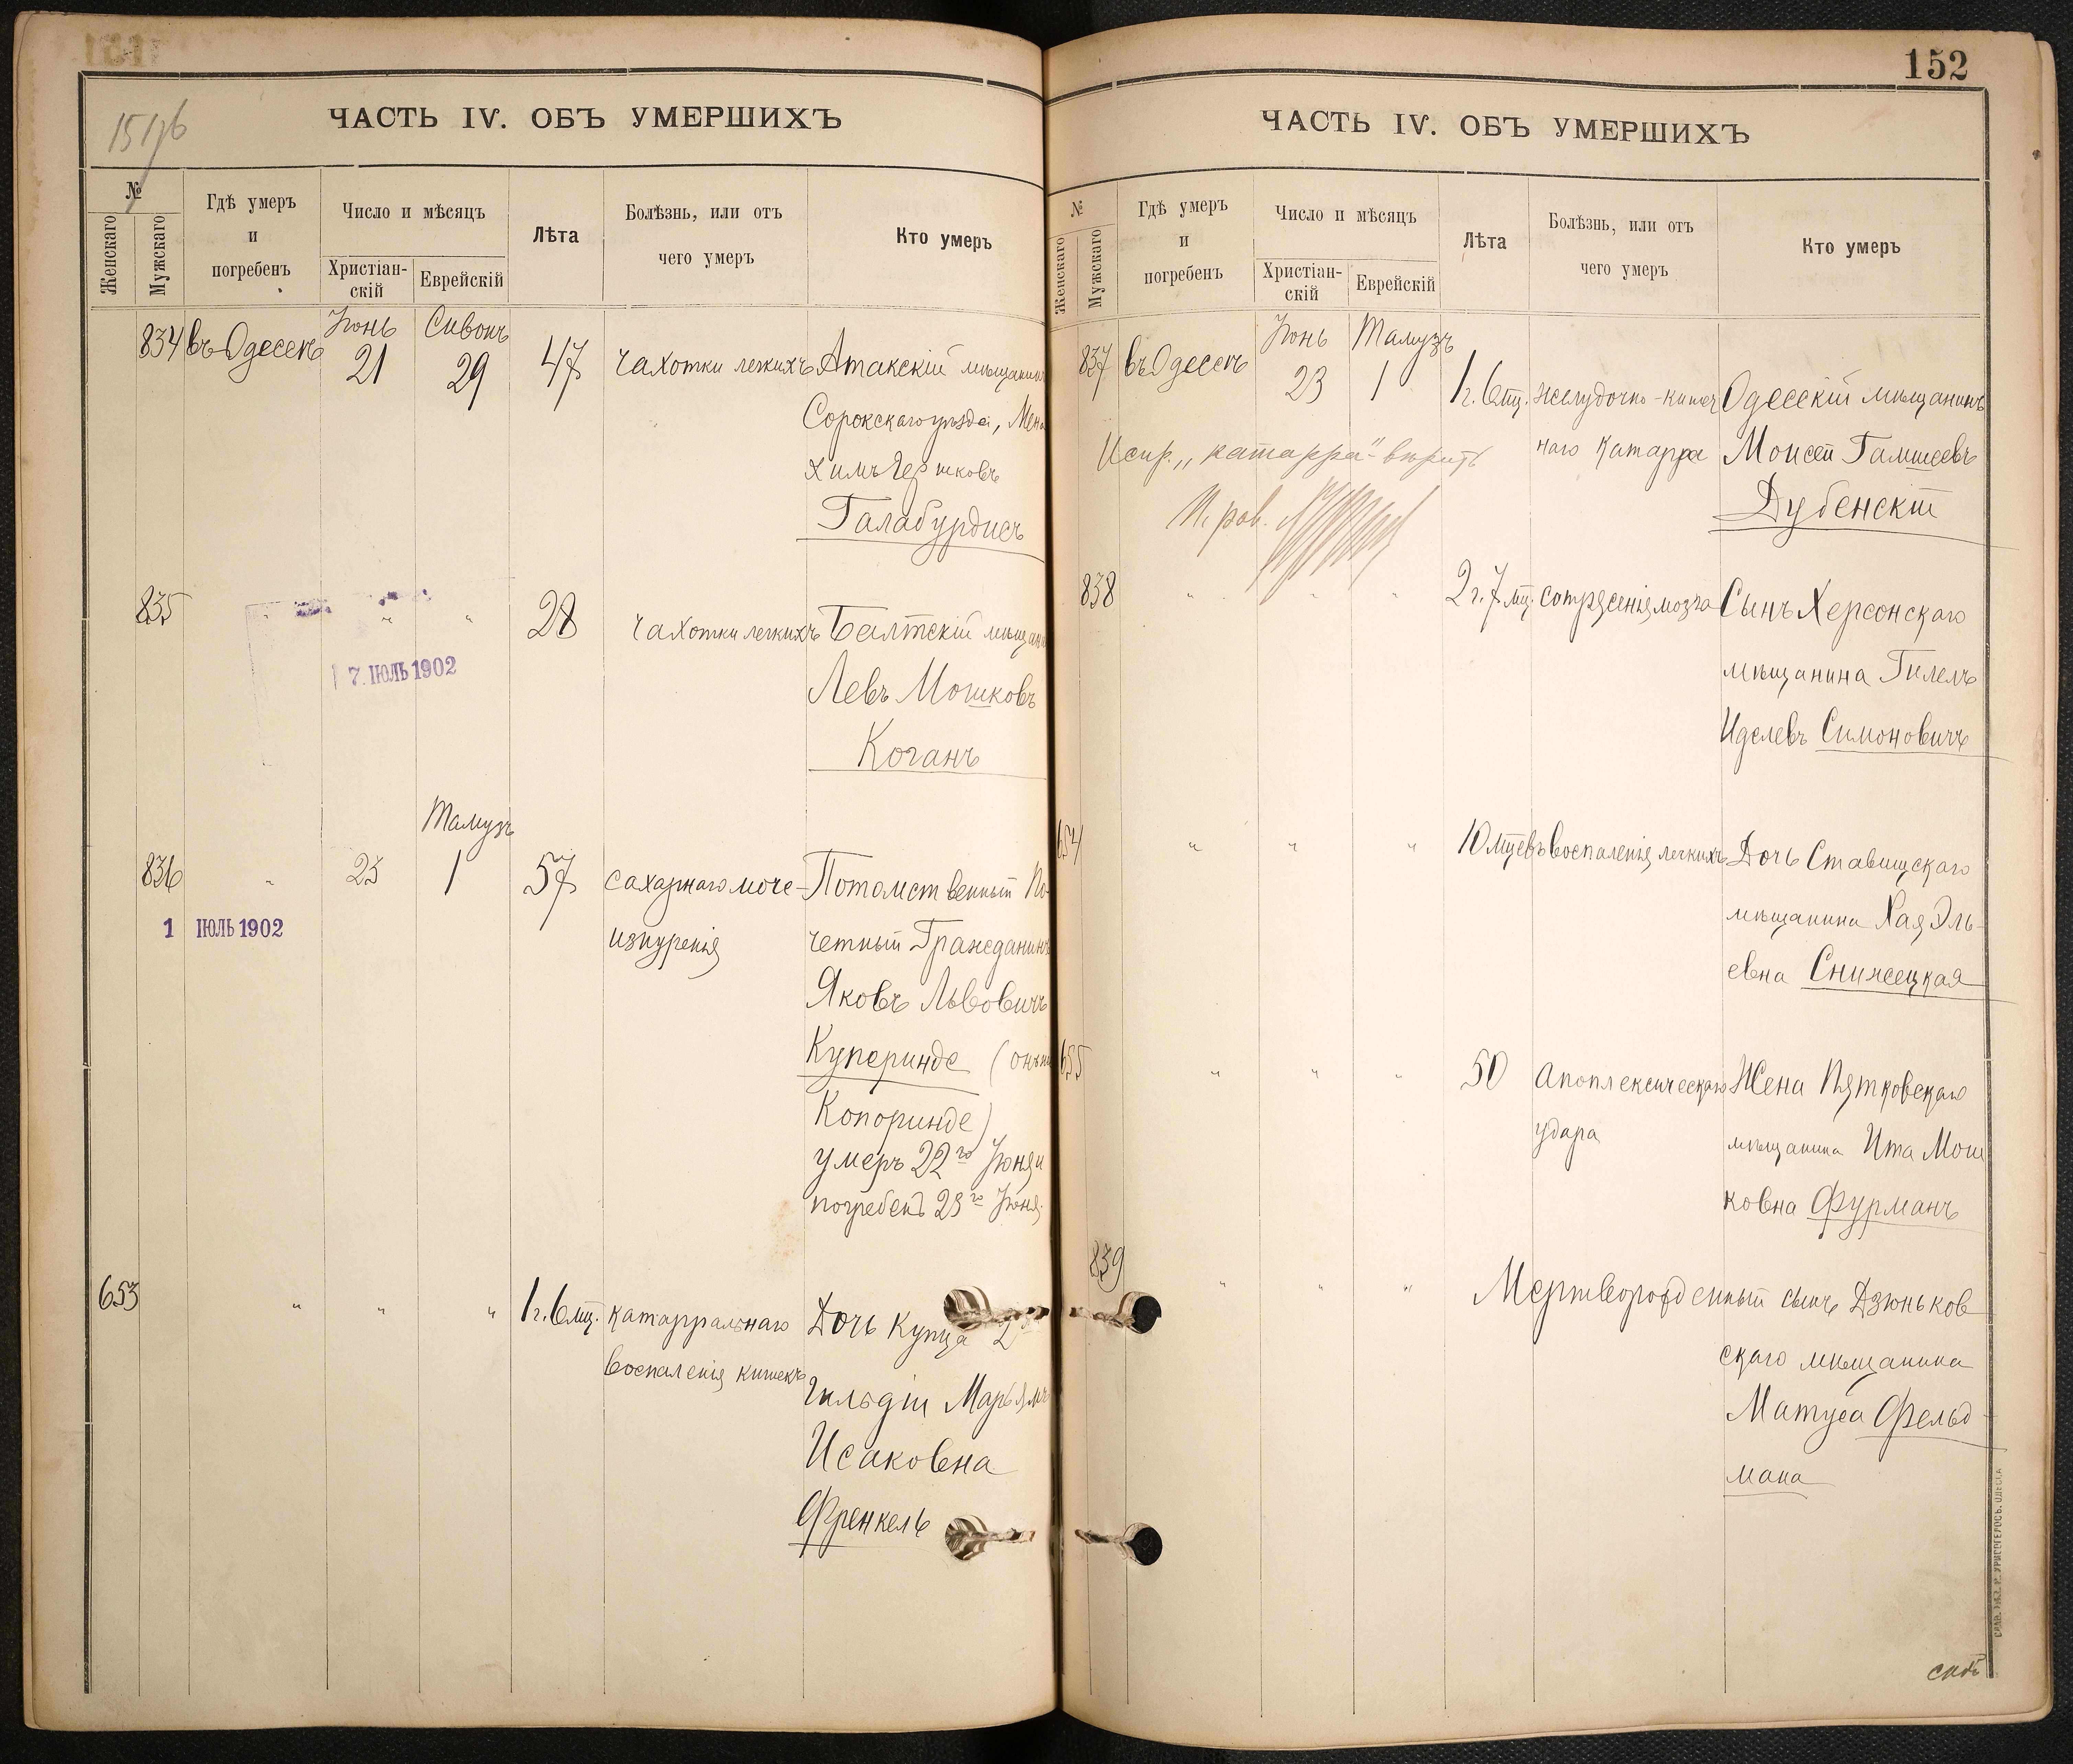 ЧАСТЬ IV. ОБЪ УМЕРШИХЪ
№
Женскаго
Мужскаго
Гдѣ умеръ
и
погребенъ
Число и мѣсяцъ
Христіан-
скій
Еврейскій
Лѣта
Болѣзнь, или отъ
чего умеръ
Кто умеръ
834 въ Одессѣ Іюнь 21 Сивонъ 29 47 чахотки легкихъ Атакскій мѣщанинъ
Сорокскаго уѣзда, Мена
химъ Гершковъ
Галабурдисъ
835 " " " 28 чахотки легкихъ Балтскій мѣщани
Левъ Мошковъ
Коганъ
7. ІЮЛЬ 1902
Тамузъ
836 " 23 1 57 сахарнаго моче- Потомственный По-
изнуренія четный Гражданинъ
1 ІЮЛЬ 1902
Яковъ Львовичъ
Куперинде
Копоринде)
умеръ 22го Іюня и
погребенъ 23го Іюня.
653 " " " 1 г. 6 мц. катарральнаго Дочь Купца 2й
воспаленія кишекъ гильдіи Марьямъ
Исаковна
Френкель
152
ЧАСТЬ IV. ОБЪ УМЕРШИХЪ
№
Женскаго
Мужскаго
Гдѣ умеръ
и
погребенъ
Число и мѣсяцъ
Христіан-
скій
Еврейскій
Лѣта
Болѣзнь, или отъ
чего умеръ
Кто умеръ
837 въ Одессѣ Іюнь 23 Тамузъ 1 1 г. 6 мц. желудочно-кишеч Одесскій мѣщанинъ
наго катарра Моисей Гамшеевъ
Дубенскій
Испр. „катарра" вѣрить
838 " " " 2 г. 7 мц. сотрясенія мозга Сынъ Херсонскаго
мѣщанина Гилель
Иделевъ Симоновичъ
654 " " " 10 мцевъ воспаленія легкихъ Дочь Ставищскаго
мѣщанина Хая Эль-
евна
655 " " " 50 Апоплексическаго Жена Пятковскаго
удара мѣщанина Ита Мош
ковна Фурманъ
839 " " " Мертворожденный сынъ Дзюньков
скаго мѣщанина
Матуса Фельд-
мана